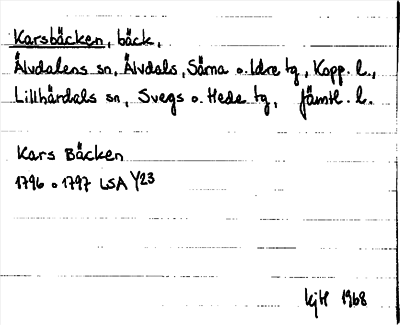 Karsbäcken, bäck,
Älvdalens sn, Älvdals, Särna o. Idre tg, Kopp. l.,
Lillhärdals sn, Svegs o. Hede tg, Jämtl. l.
Kars Bäcken
1796 o 1797 LSA Y23
kjH 1968